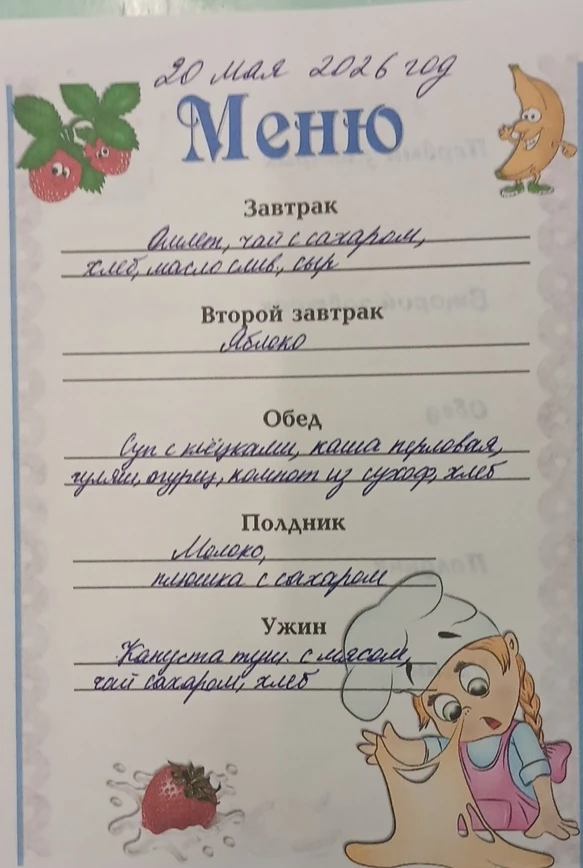 20 мая 2026 год
Меню
Завтрак
Омлет, чай с сахаром,
хлеб, масло слив., сыр
Второй завтрак
Яблоко
Обед
Суп с клёцками, каша перловая,
гуляш, огурец, компот из сухоф, хлеб
Полдник
Молоко,
плюшка с сахаром
Ужин
Капуста туш. с мясом,
чай сахаром, хлеб